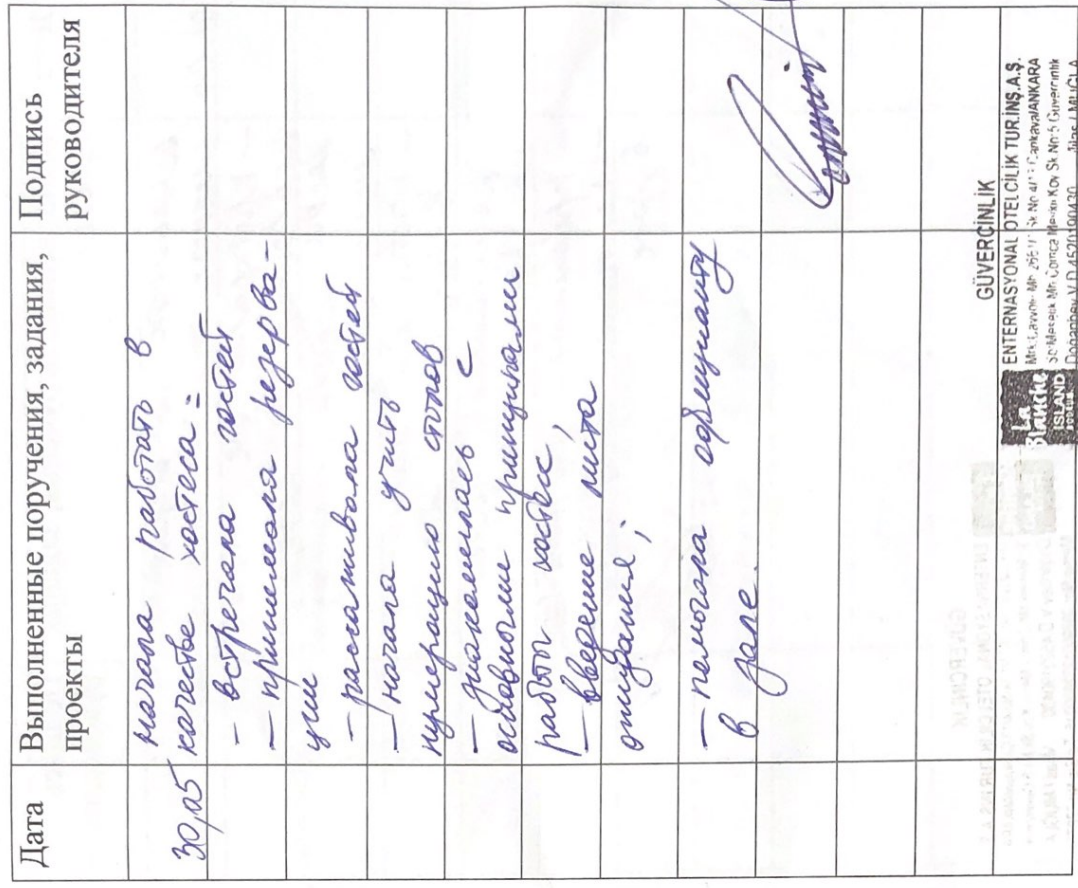 Дата
Выполненные поручения, задания,
проекты
Подпись
руководителя
30,05
начала работать в
качестве хостеса:
- встречала гостей
- принимала резерва-
ции
- рассаживала гостей
- начала учить
нумерацию столов
- знакомилась с
основными принципами
работы хостес,
- введение листа
ожидания;
- помогала официанту
в зале.
GÜVERCİNLİK
La Blanche ISLAND
ENTERNASYONAL OTELCİLİK TUR.İNŞ.A.Ş.
Doğanbey V.D.4520190430 Milas / MUĞLA